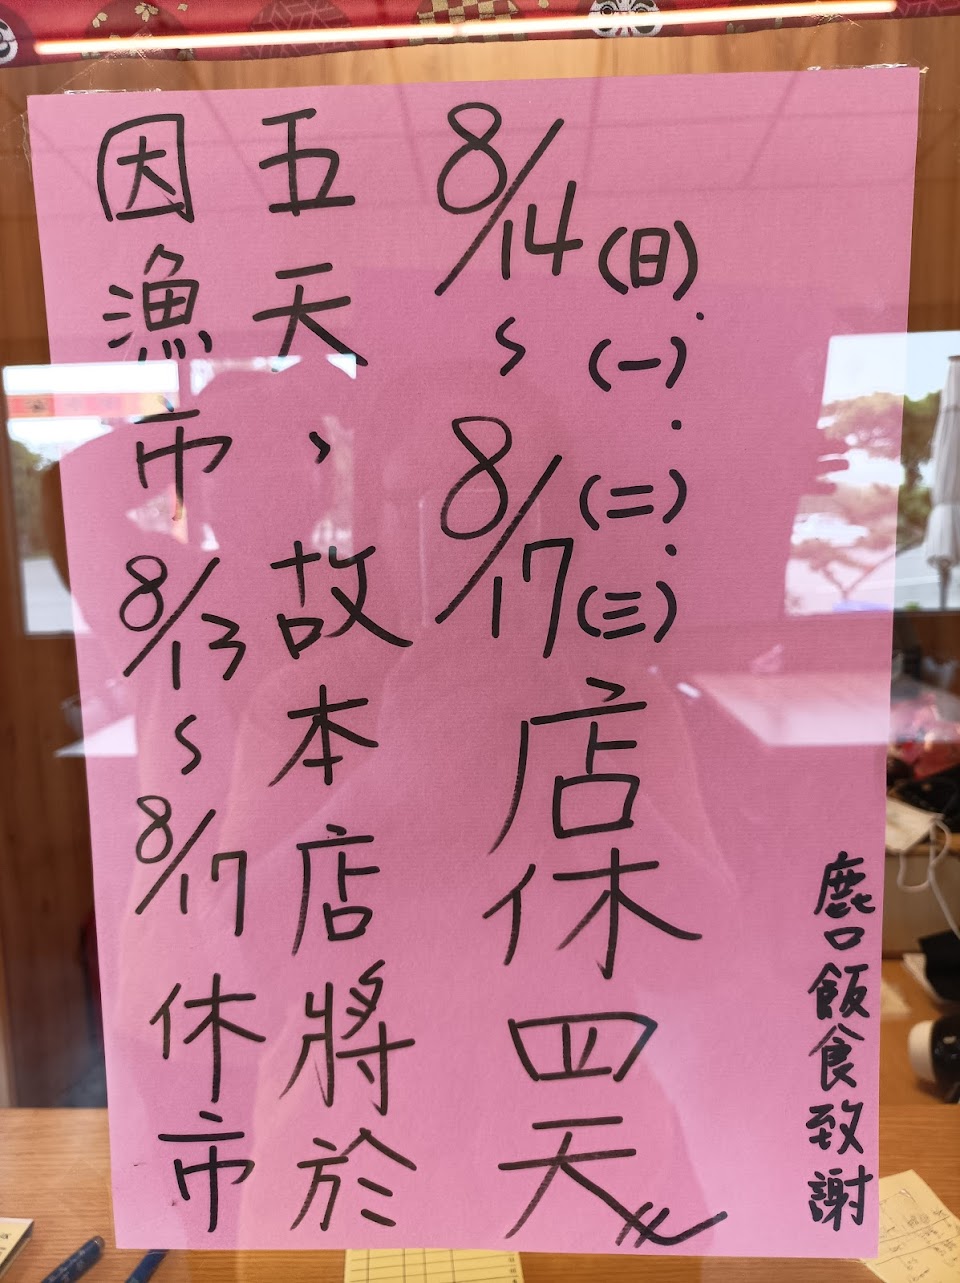 因漁市8/13~8/17休市
五天、故本店將於
8/14~8/17店休四天
(日)、(一)、(二)、(三)
鹿口飯食致謝